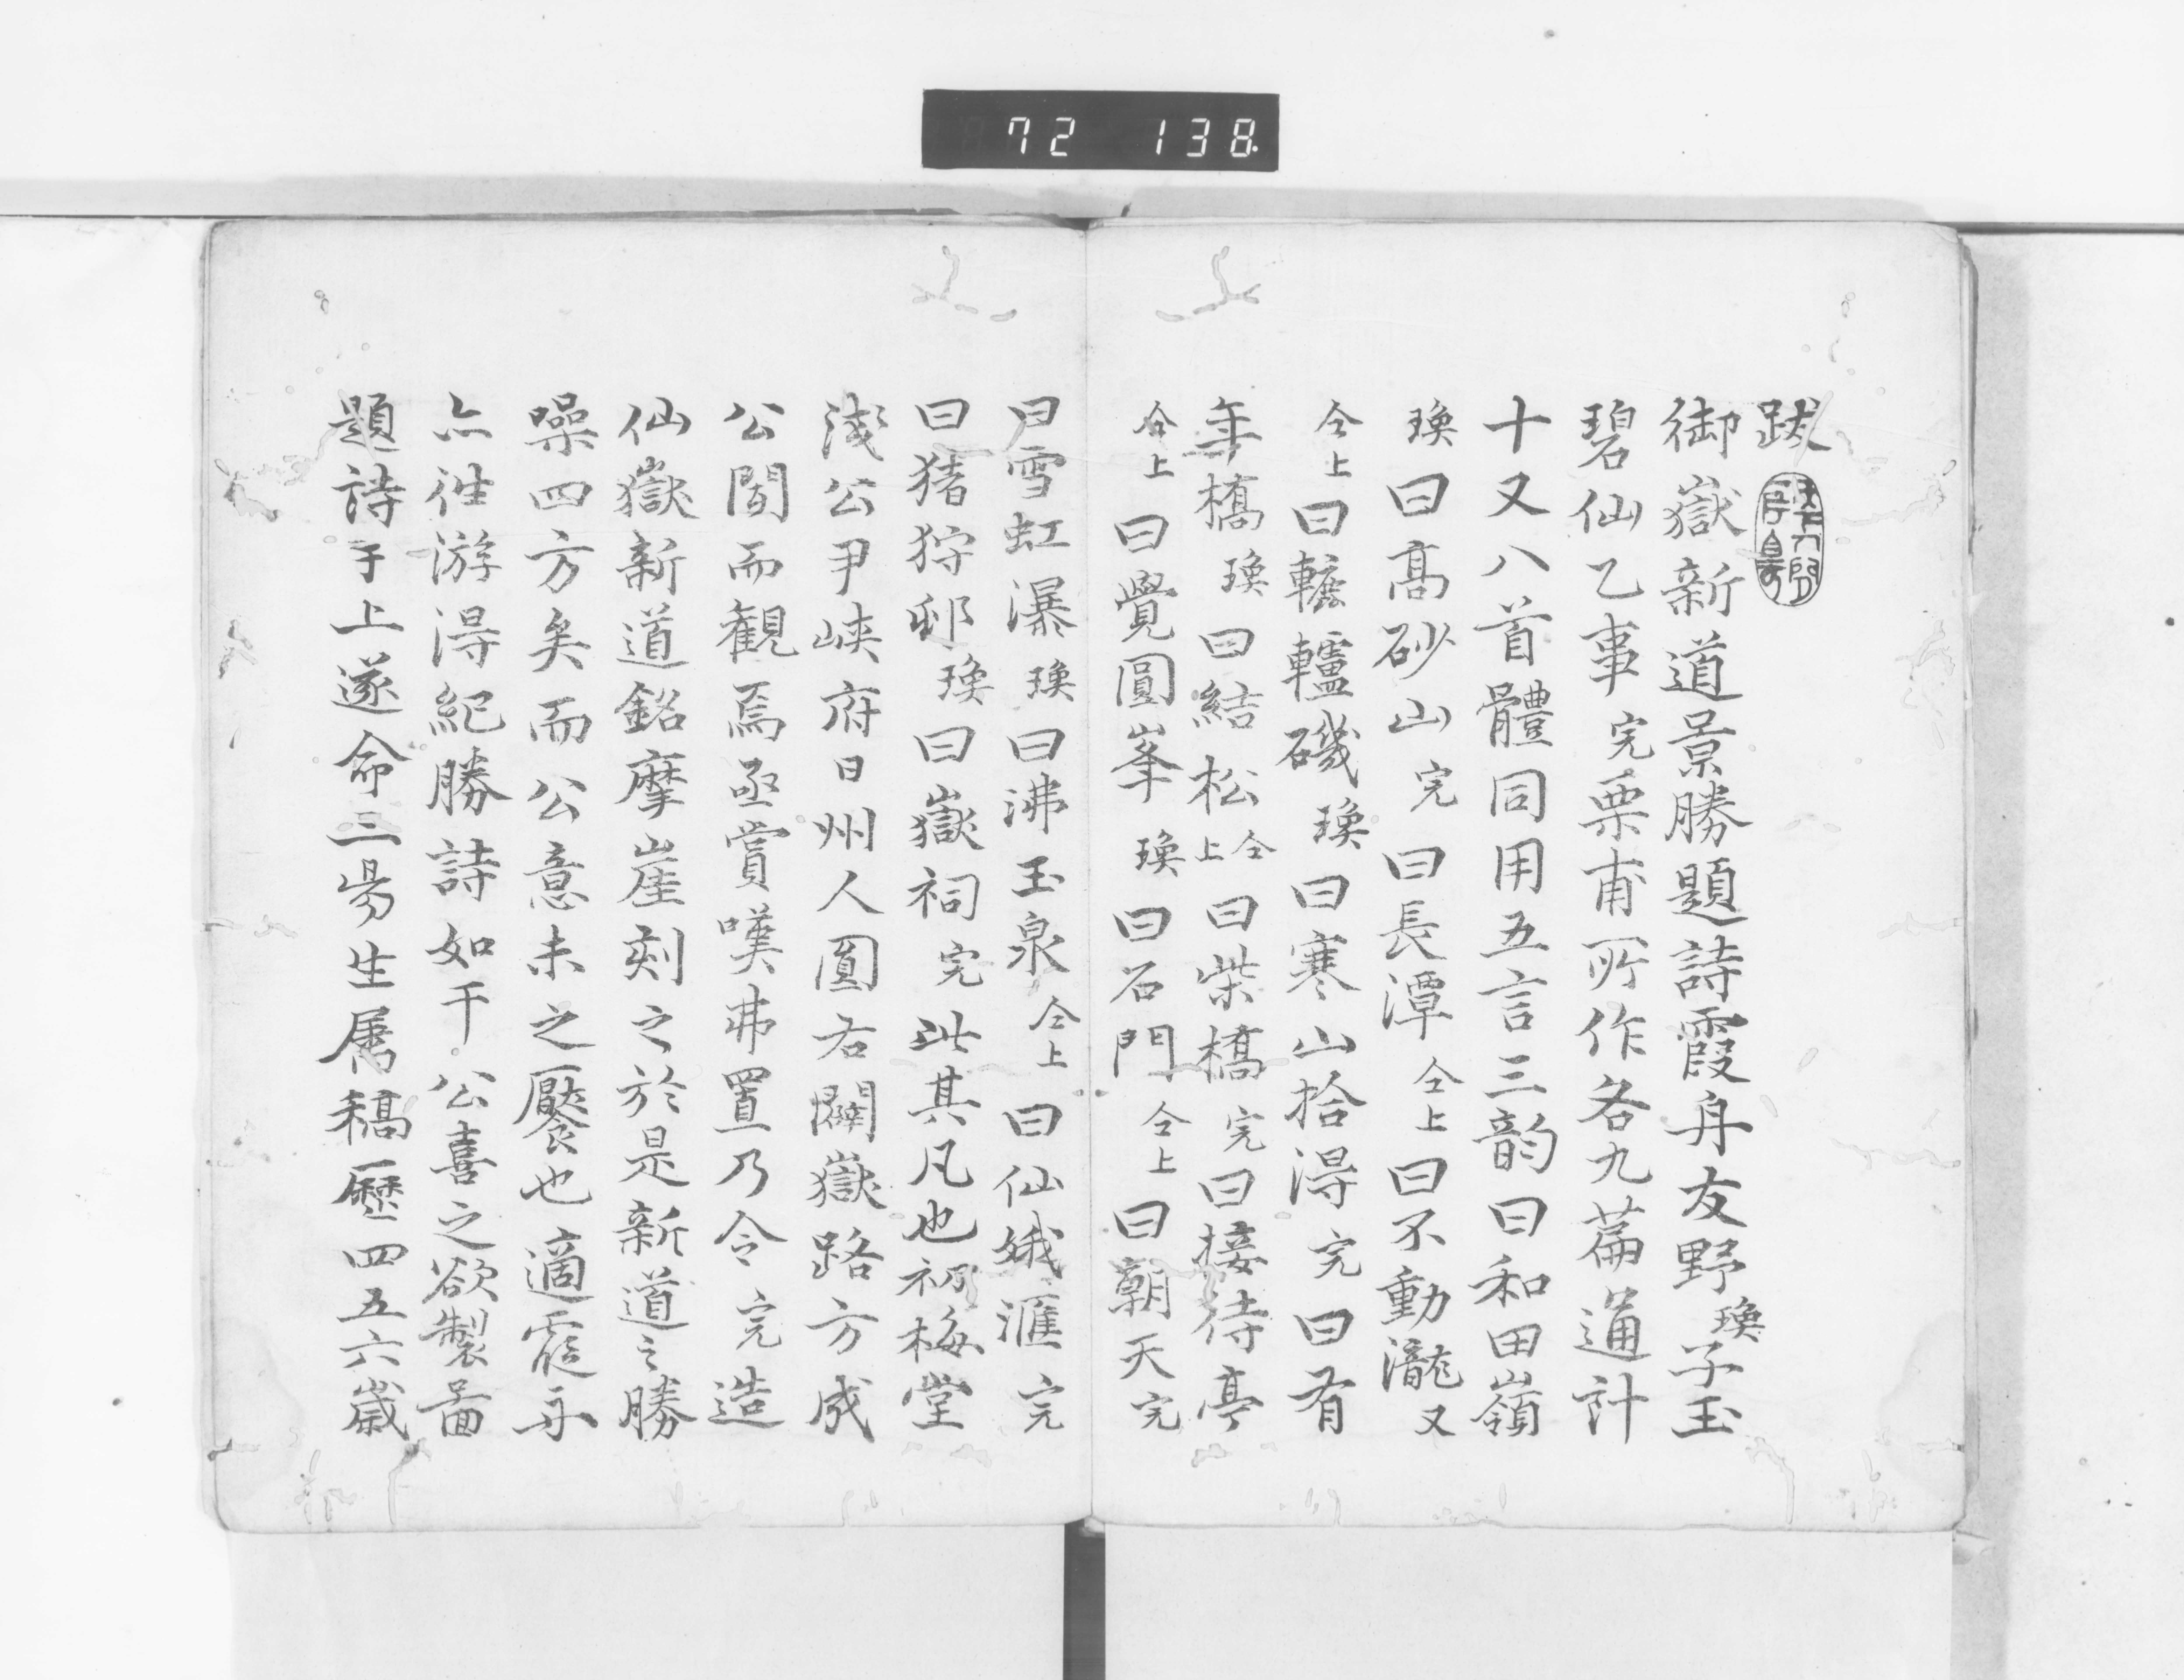 72 138.
跋
御嶽新道景勝題詩霞舟友野瑍子玉
碧仙乙事完栗甫所作各九篇通計
十又八首體同用五言三韵曰和田嶺
瑍曰髙砂山完曰長潭仝上曰不動瀧又
仝上曰轆轤磯瑍曰寒山拾得完曰有
年橋瑍曰結松仝上曰柴橋完曰接待亭
仝上曰覺圓峯瑍曰石門仝上曰朝天完
曰雪虹瀑瑍曰沸玉泉仝上曰仙娥滙完
曰猪狩邨瑍曰嶽祠完此其凡也初梅堂
淺公尹峽府日州人圓右闢嶽路方成
公閲而觀焉亟賞嘆弗置乃令完造
仙嶽新道銘摩崖刻之於是新道之勝
噪四方矣而公意未之饜也適霞舟
亦徃游得紀勝詩如干公喜之欲製啚
題詩于上遂命三昜生属稿歷四五六歲